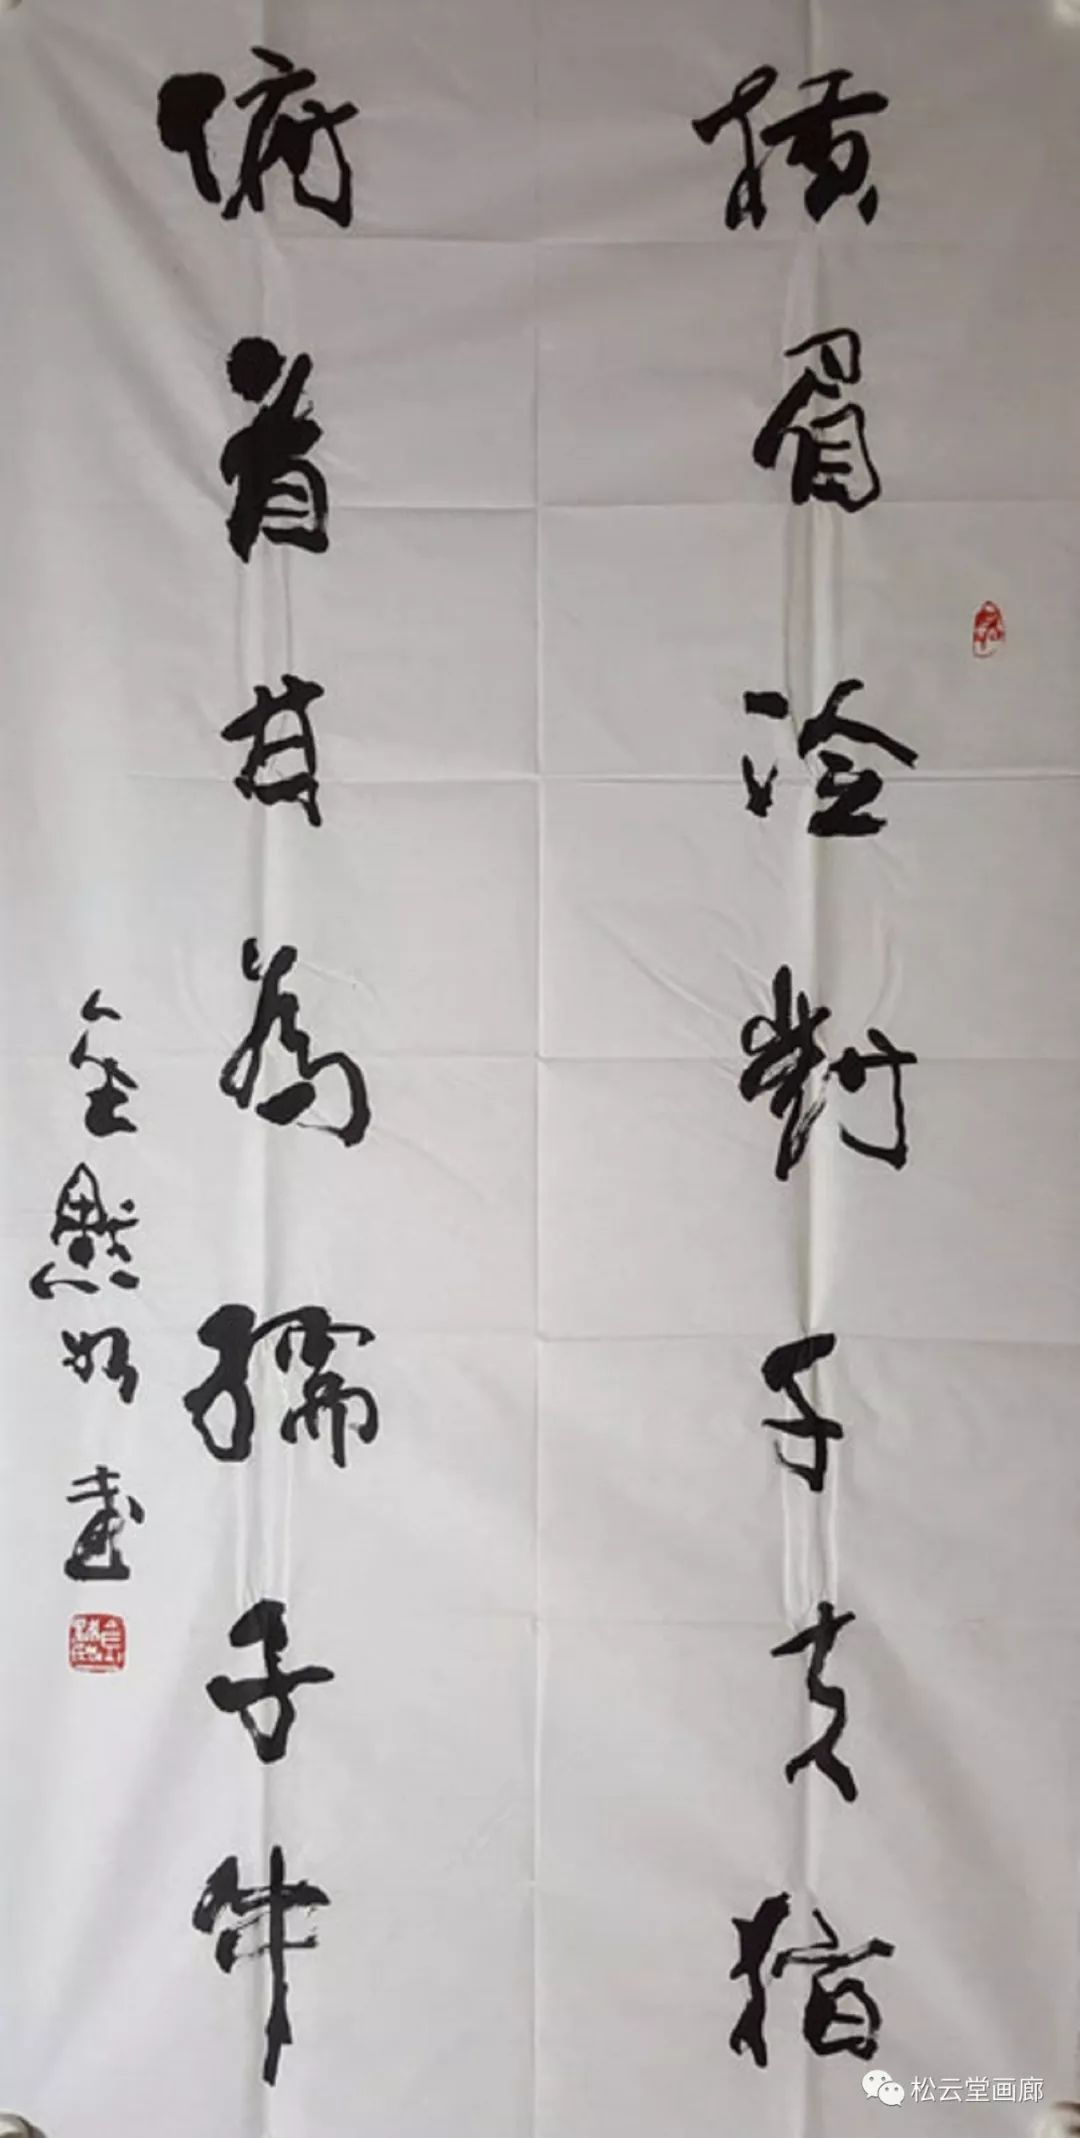 橫眉冷對千夫指
俯首甘為孺子牛
金默如書
松云堂画廊